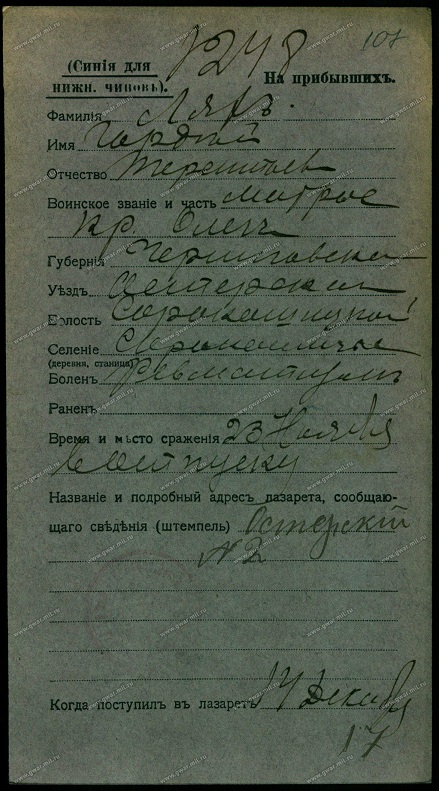 1248
107
(Синія для
нижн. чиновъ).
На прибывшихъ.
Фамилія Ляхъ.
Имя Гордей
Отчество Терентьев
Воинское званіе и часть матрос
кр. Олег
Губернія Черниговская
Уѣздъ Остерский
Волость Сорокошицкой
Селеніе Сорокошичи
(деревни, станицы)
Боленъ Ревматизмъ
Раненъ
Время и мѣсто сраженія 23 Ноября
в отпуску
Названіе и подробный адресъ лазарета, сообщаю-
щаго свѣдѣнія (штемпель) Остерскій
№2
Когда поступил въ лазаретъ 14 Декабря
17
www.gwar.mil.ru